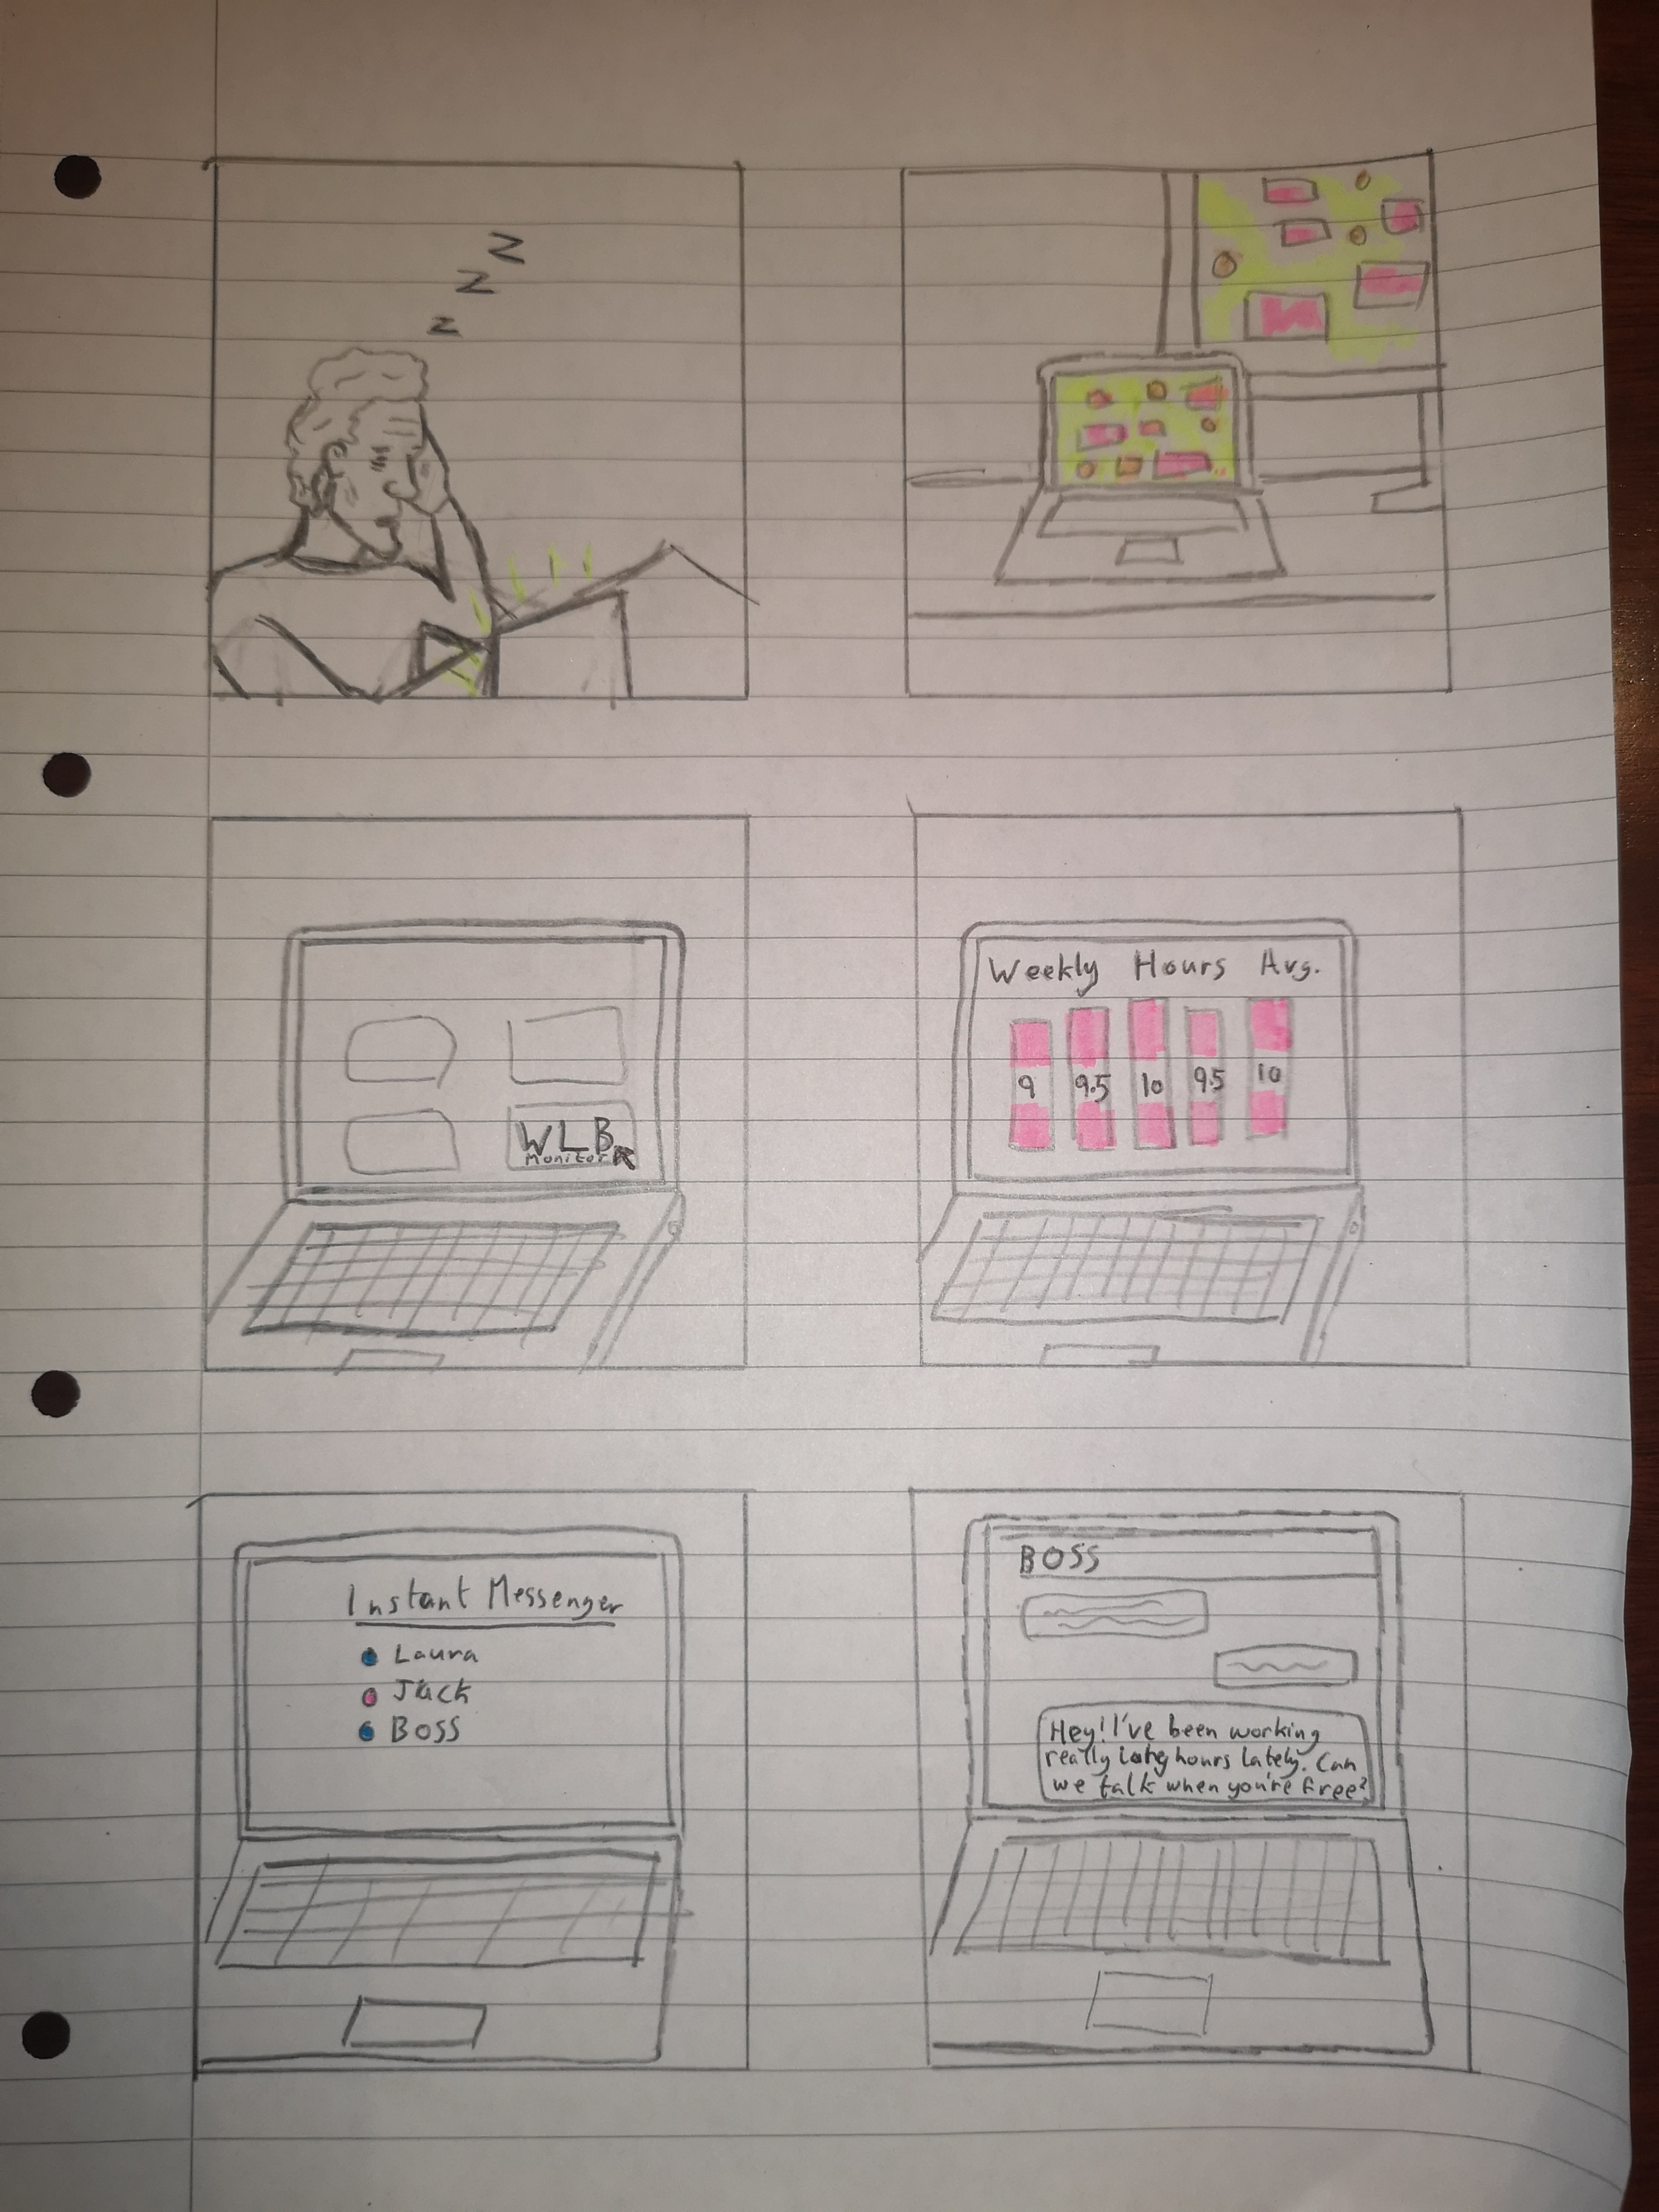 z
z
z
WLB
Monitor
Weekly Hours Avg.
9 9.5 10 9.5 10
Instant Messenger
Laura
Jack
Boss
BOSS
Hey! I've been working
really hours lately. Can
we talk when you're free?